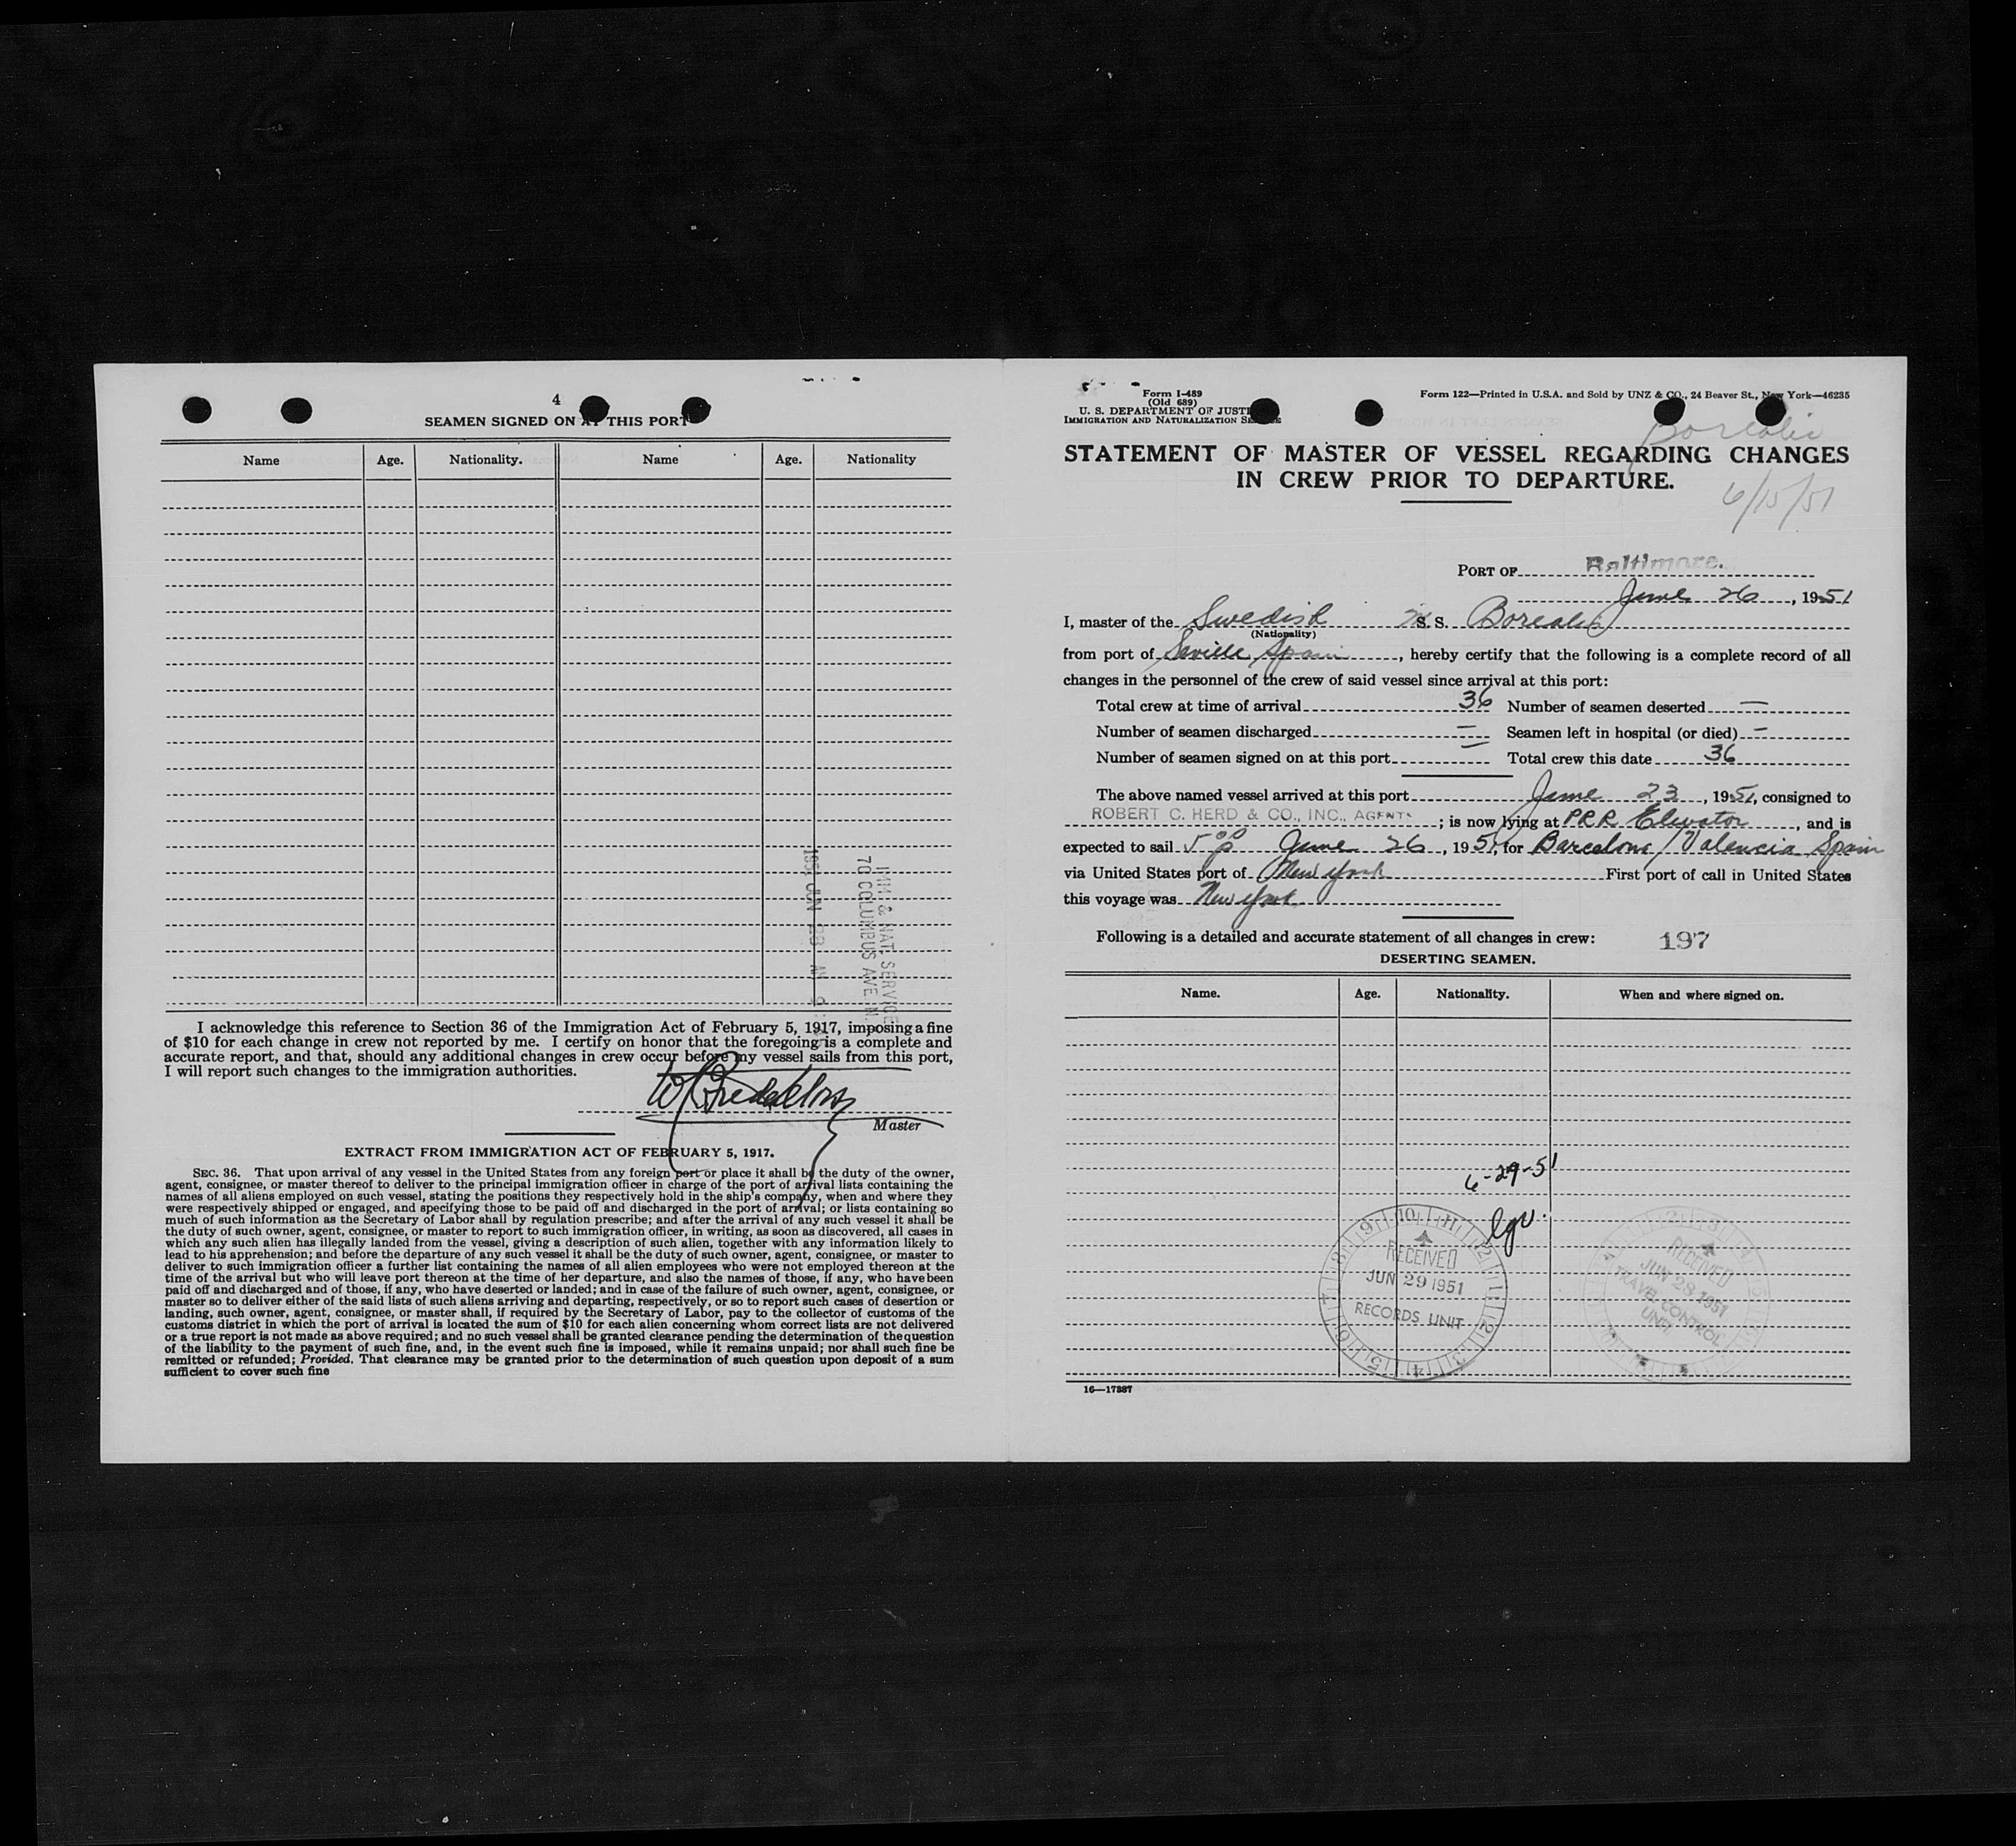 4
SEAMEN SIGNED ON AT THIS PORT
Name Age. Nationality. Name Age. Nationality
IMM & NAT. SERVICE
70 COLUMBUS AVE N.
1951 JUN 28 AM 9
I acknowledge this reference to Section 36 of the Immigration Act of February 5, 1917, imposing a fine
of $10 for each change in crew not reported by me. I certify on honor that the foregoing is a complete and
accurate report, and that, should any additional changes in crew occur before my vessel sails from this port,
I will report such changes to the immigration authorities.
Master
EXTRACT FROM IMMIGRATION ACT OF FEBRUARY 5, 1917.
SEC. 36. That upon arrival of any vessel in the United States from any foreign port or place it shall be the duty of the owner,
agent, consignee, or master thereof to deliver to the principal immigration officer in charge of the port of arrival lists containing the
names of all aliens employed on such vessel, stating the positions they respectively hold in the ship's company, when and where they
were respectively shipped or engaged, and specifying those to be paid off and discharged in the port of arrival; or lists containing so
much of such information as the Secretary of Labor shall by regulation prescribe; and after the arrival of any such vessel it shall be
the duty of such owner, agent, consignee, or master to report to such immigration officer, in writing, as soon as discovered, all cases in
which any such alien has illegally landed from the vessel, giving a description of such alien, together with any information likely to
lead to his apprehension; and before the departure of any such vessel it shall be the duty of such owner, agent, consignee, or master to
deliver to such immigration officer a further list containing the names of all alien employees who were not employed thereon at the
time of the arrival but who will leave port thereon at the time of her departure, and also the names of those, if any, who have been
paid off and discharged and of those, if any, who have deserted or landed; and in case of the failure of such owner, agent, consignee, or
master so to deliver either of the said lists of such aliens arriving and departing, respectively, or so to report such cases of desertion or
landing, such owner, agent, consignee, or master shall, if required by the Secretary of Labor, pay to the collector of customs of the
customs district in which the port of arrival is located the sum of $10 for each alien concerning whom correct lists are not delivered
or a true report is not made as above required; and no such vessel shall be granted clearance pending the determination of the question
of the liability to the payment of such fine, and, in the event such fine is imposed, while it remains unpaid; nor shall such fine be
remitted or refunded; Provided, That clearance may be granted prior to the determination of such question upon deposit of a sum
sufficient to cover such fine
Form I-489
(Old 689)
U. S. DEPARTMENT OF JUSTI
IMMIGRATION AND NATURALIZATION SE
Form 122—Printed in U.S.A. and Sold by UNZ & CO., 24 Beaver St., New York—46235
Borealis
STATEMENT OF MASTER OF VESSEL REGARDING CHANGES
IN CREW PRIOR TO DEPARTURE.
6/15/51
PORT OF Baltimore.
June 26, 1951
I, master of the Swedish S. S. Borealis
(Nationality)
from port of Seville Spain, hereby certify that the following is a complete record of all
changes in the personnel of the crew of said vessel since arrival at this port:
Total crew at time of arrival 36 Number of seamen deserted —
Number of seamen discharged — Seamen left in hospital (or died) —
Number of seamen signed on at this port — Total crew this date 36
The above named vessel arrived at this port June 23, 1951, consigned to
ROBERT C. HERD & CO., INC., AGENTS ; is now lying at PRR Elevator, and is
expected to sail 5 00 p June 26, 1951, for Barcelona/Valencia Spain
via United States port of New York First port of call in United States
this voyage was New York
Following is a detailed and accurate statement of all changes in crew: 197
DESERTING SEAMEN.
Name. Age. Nationality. When and where signed on.
6-29-51
lgv.
RECEIVED
JUN 29 1951
RECORDS UNIT
RECEIVED
JUN 28 1951
TRAVEL CONTROL
UNIT
16—17387